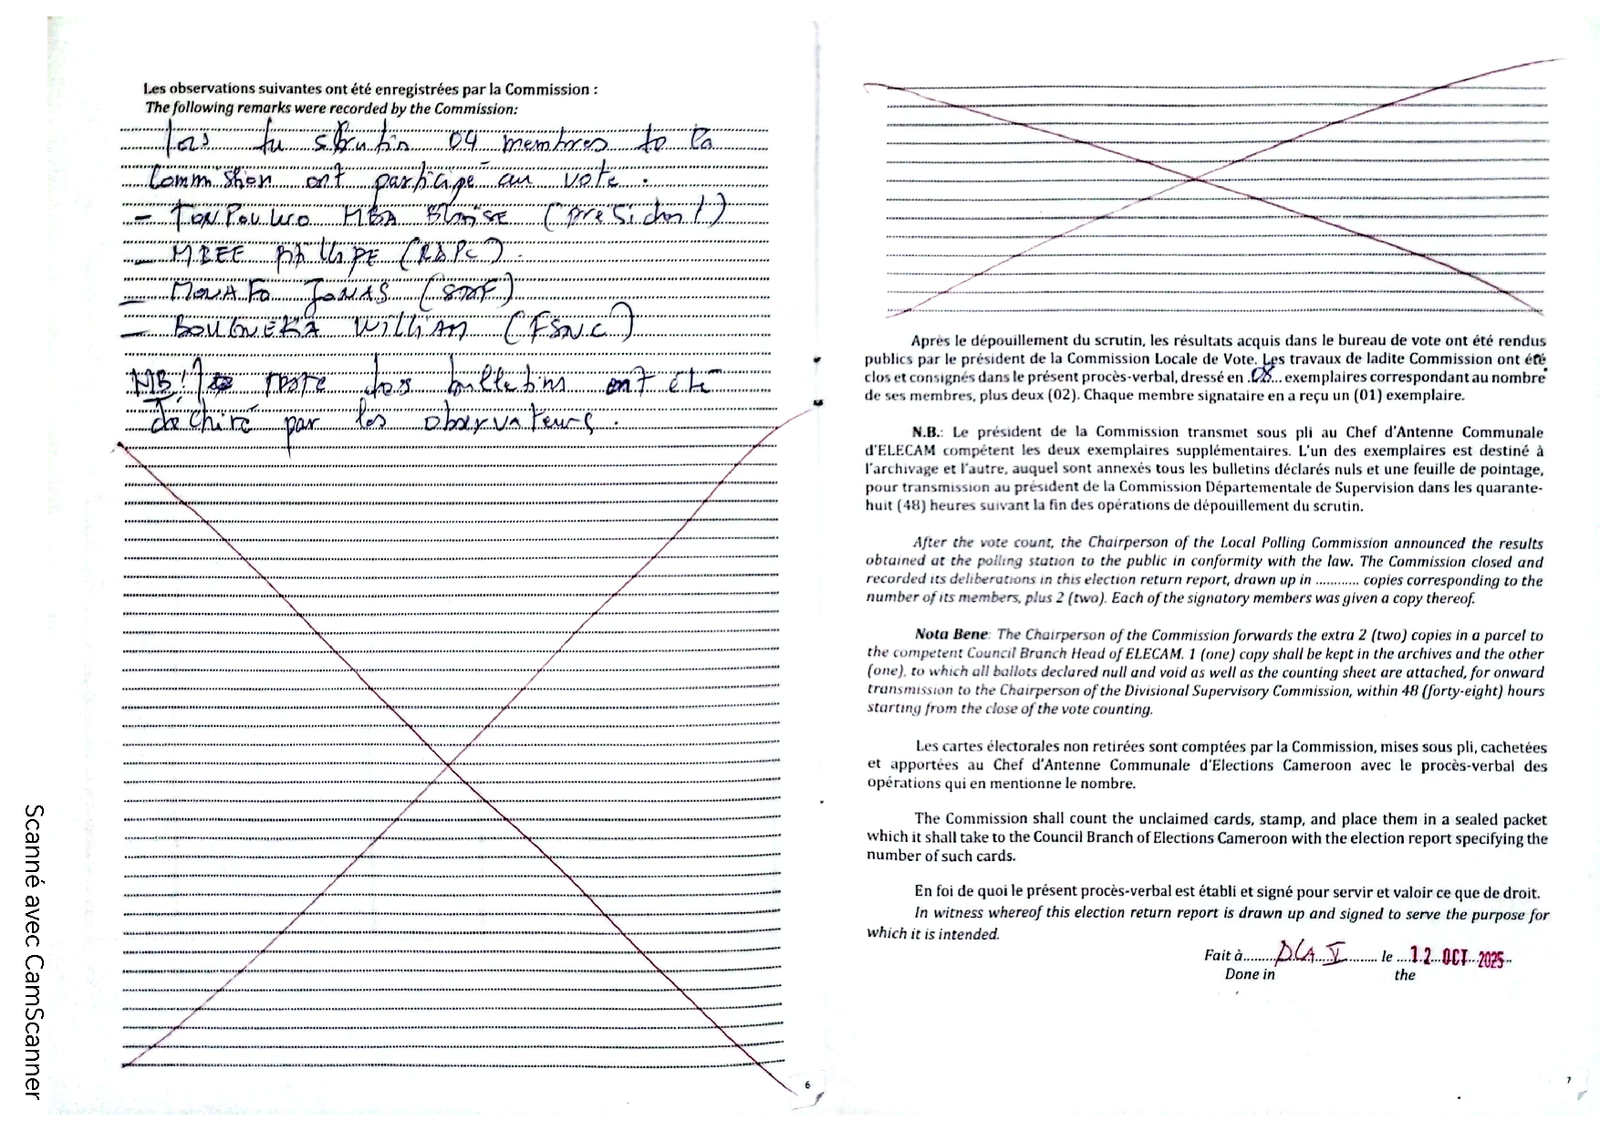 Les observations suivantes ont été enregistrées par la Commission :
The following remarks were recorded by the Commission:
du scrutin 04 membres la
Commission ont participé au vote.
- MBA (président)
- MBEE (RDPC).
- JONAS (SDF)
- WILLIAM (FSNC)
NB! reste des bulletins ont été
déchiré par les observateurs.
6
Après le dépouillement du scrutin, les résultats acquis dans le bureau de vote ont été rendus
publics par le président de la Commission Locale de Vote. Les travaux de ladite Commission ont été
clos et consignés dans le présent procès-verbal, dressé en .08... exemplaires correspondant au nombre
de ses membres, plus deux (02). Chaque membre signataire en a reçu un (01) exemplaire.
N.B.: Le président de la Commission transmet sous pli au Chef d'Antenne Communale
d'ELECAM compétent les deux exemplaires supplémentaires. L'un des exemplaires est destiné à
l'archivage et l'autre, auquel sont annexés tous les bulletins déclarés nuls et une feuille de pointage,
pour transmission au président de la Commission Départementale de Supervision dans les quarante-
huit (48) heures suivant la fin des opérations de dépouillement du scrutin.
After the vote count, the Chairperson of the Local Polling Commission announced the results
obtained at the polling station to the public in conformity with the law. The Commission closed and
recorded its deliberations in this election return report, drawn up in ........... copies corresponding to the
number of its members, plus 2 (two). Each of the signatory members was given a copy thereof.
Nota Bene: The Chairperson of the Commission forwards the extra 2 (two) copies in a parcel to
the competent Council Branch Head of ELECAM. 1 (one) copy shall be kept in the archives and the other
(one), to which all ballots declared null and void as well as the counting sheet are attached, for onward
transmission to the Chairperson of the Divisional Supervisory Commission, within 48 (forty-eight) hours
starting from the close of the vote counting.
Les cartes électorales non retirées sont comptées par la Commission, mises sous pli, cachetées
et apportées au Chef d'Antenne Communale d'Elections Cameroon avec le procès-verbal des
opérations qui en mentionne le nombre.
The Commission shall count the unclaimed cards, stamp, and place them in a sealed packet
which it shall take to the Council Branch of Elections Cameroon with the election report specifying the
number of such cards.
En foi de quoi le présent procès-verbal est établi et signé pour servir et valoir ce que de droit.
In witness whereof this election return report is drawn up and signed to serve the purpose for
which it is intended.
Fait à........DLA V........ le ...12 OCT 2025..
Done in the
7
Scanné avec CamScanner